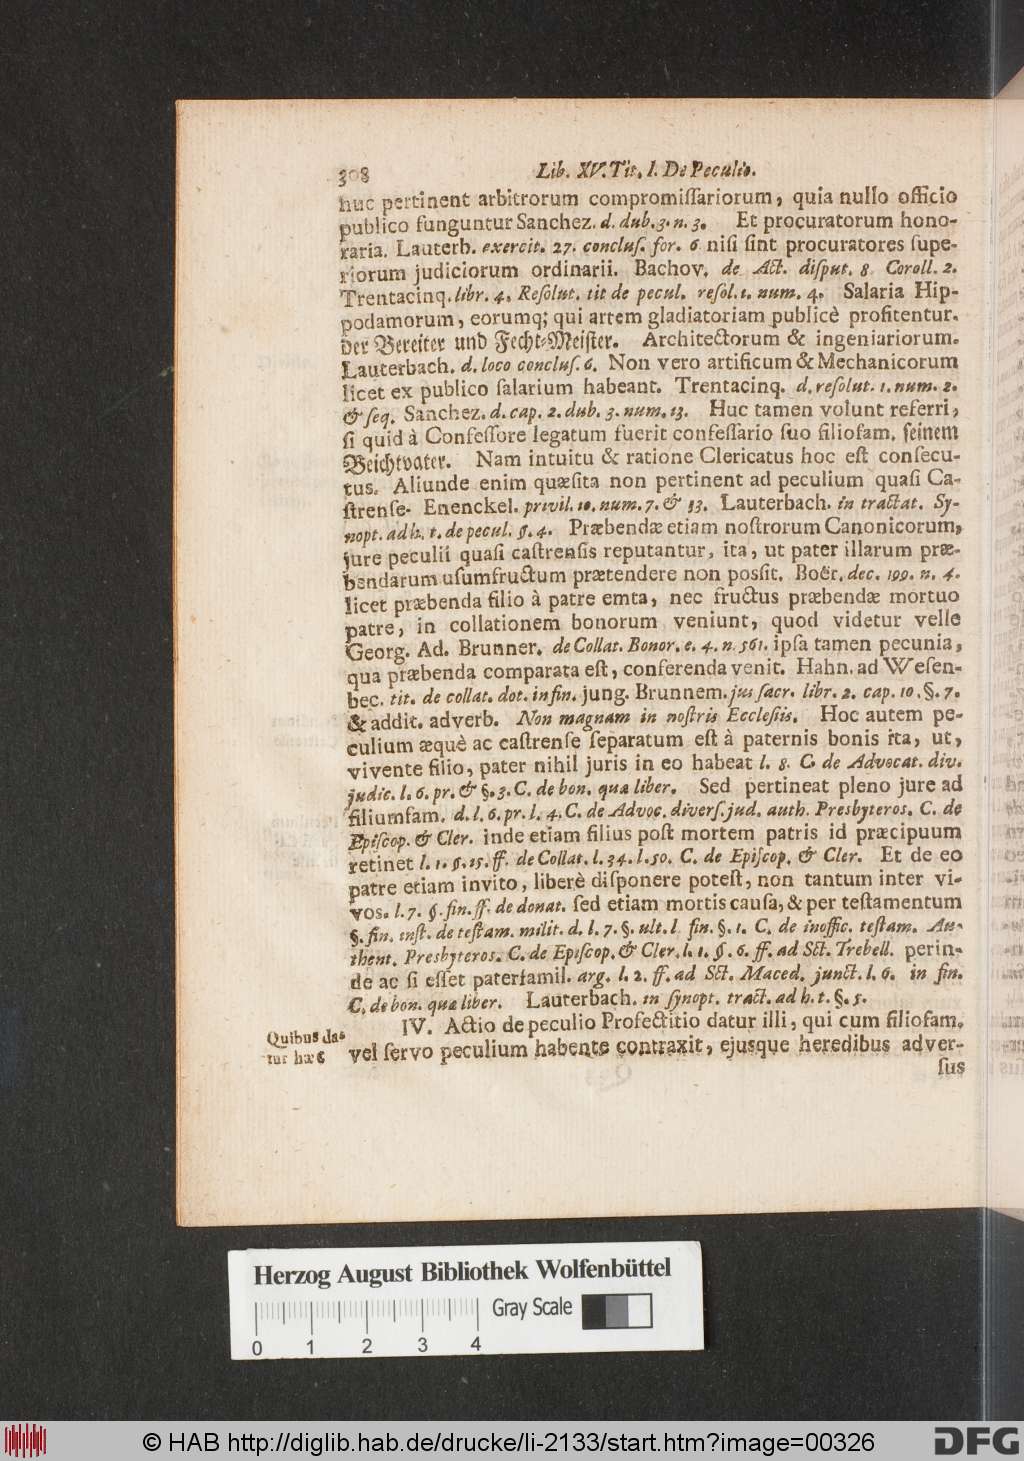 308
Lib. XV. Tit. I. De Peculio.
huc pertinent arbitrorum compromiſſariorum, quia nullo officio
publico funguntur Sanchez. d. dub. 3. n. 3. Et procuratorum hono-
raria. Lauterb. exercit. 27. concluſ. for. 6 niſi ſint procuratores ſupe-
riorum judiciorum ordinarii. Bachov. de Act. diſput. 8 Coroll. 2.
Trentacinq. libr. 4. Reſolut. tit de pecul. reſol. 1. num. 4. Salaria Hip-
podamorum, eorumq; qui artem gladiatoriam publicè profitentur.
der Bereiter und Fecht-Meiſter. Architectorum & ingeniariorum.
Lauterbach. d. loco concluſ. 6. Non vero artificum & Mechanicorum
licet ex publico ſalarium habeant. Trentacinq. d. reſolut. 1. num. 2.
& ſeq. Sanchez. d. cap. 2. dub. 3. num. 13. Huc tamen volunt referri,
ſi quid à Confeſſore legatum fuerit confeſſario ſuo filiofam. ſeinem
Beichtvater. Nam intuitu & ratione Clericatus hoc eſt conſecu-
tus. Aliunde enim quæſita non pertinent ad peculium quaſi Ca-
ſtrenſe. Enenckel. privil. 10. num. 7. & 13. Lauterbach. in tractat. Sy-
nopt. ad h. t. de pecul. §. 4. Præbendæ etiam noſtrorum Canonicorum,
jure peculii quaſi caſtrenſis reputantur, ita, ut pater illarum præ-
bendarum uſumfructum prætendere non poſſit. Boër. dec. 199. n. 4.
licet præbenda filio à patre emta, nec fructus præbendæ mortuo
patre, in collationem bonorum veniunt, quod videtur velle
Georg. Ad. Brunner. de Collat. Bonor. e. 4. n. 561. ipſa tamen pecunia,
qua præbenda comparata eſt, conferenda venit. Hahn. ad Weſen-
bec. tit. de collat. dot. in fin. jung. Brunnem. jus ſacr. libr. 2. cap. 10. §. 7.
& addit. adverb. Non magnam in noſtris Eccleſiis. Hoc autem pe-
culium æquè ac caſtrenſe ſeparatum eſt à paternis bonis ita, ut,
vivente filio, pater nihil juris in eo habeat l. 8. C. de Advocat. div.
judic. l. 6. pr. & §. 3. C. de bon. quæ liber. Sed pertineat pleno jure ad
filiumfam. d. l. 6. pr. l. 4. C. de Advoc. diverſ. jud. auth. Presbyteros. C. de
Epiſcop. & Cler. inde etiam filius poſt mortem patris id præcipuum
retinet l. 1. §. 15. ff. de Collat. l. 34. l. 50. C. de Epiſcop. & Cler. Et de eo
patre etiam invito, liberè diſponere poteſt, non tantum inter vi-
vos. l. 7. §. fin. ff. de donat. ſed etiam mortis cauſa, & per teſtamentum
§. fin. inſt. de teſtam. milit. d. l. 7. §. ult. l fin. §. 1. C. de inoffic. teſtam. Au-
thent. Presbyteros. C. de Epiſcop. & Cler. l. 1. §. 6. ff. ad Sct. Trebell. perin-
de ac ſi eſſet paterfamil. arg. l. 2. ff. ad Sct. Maced. junct. l. 6. in fin.
C. de bon. quæ liber. Lauterbach. in ſynopt. tract. ad h. t. §. 5.
IV. Actio de peculio Profectitio datur illi, qui cum filiofam.
Quibus da-
tur hæc
vel ſervo peculium habente contraxit, ejusque heredibus adver-
ſus
Herzog August Bibliothek Wolfenbüttel
Gray Scale
0 1 2 3 4
© HAB http://diglib.hab.de/drucke/li-2133/start.htm?image=00326
DFG